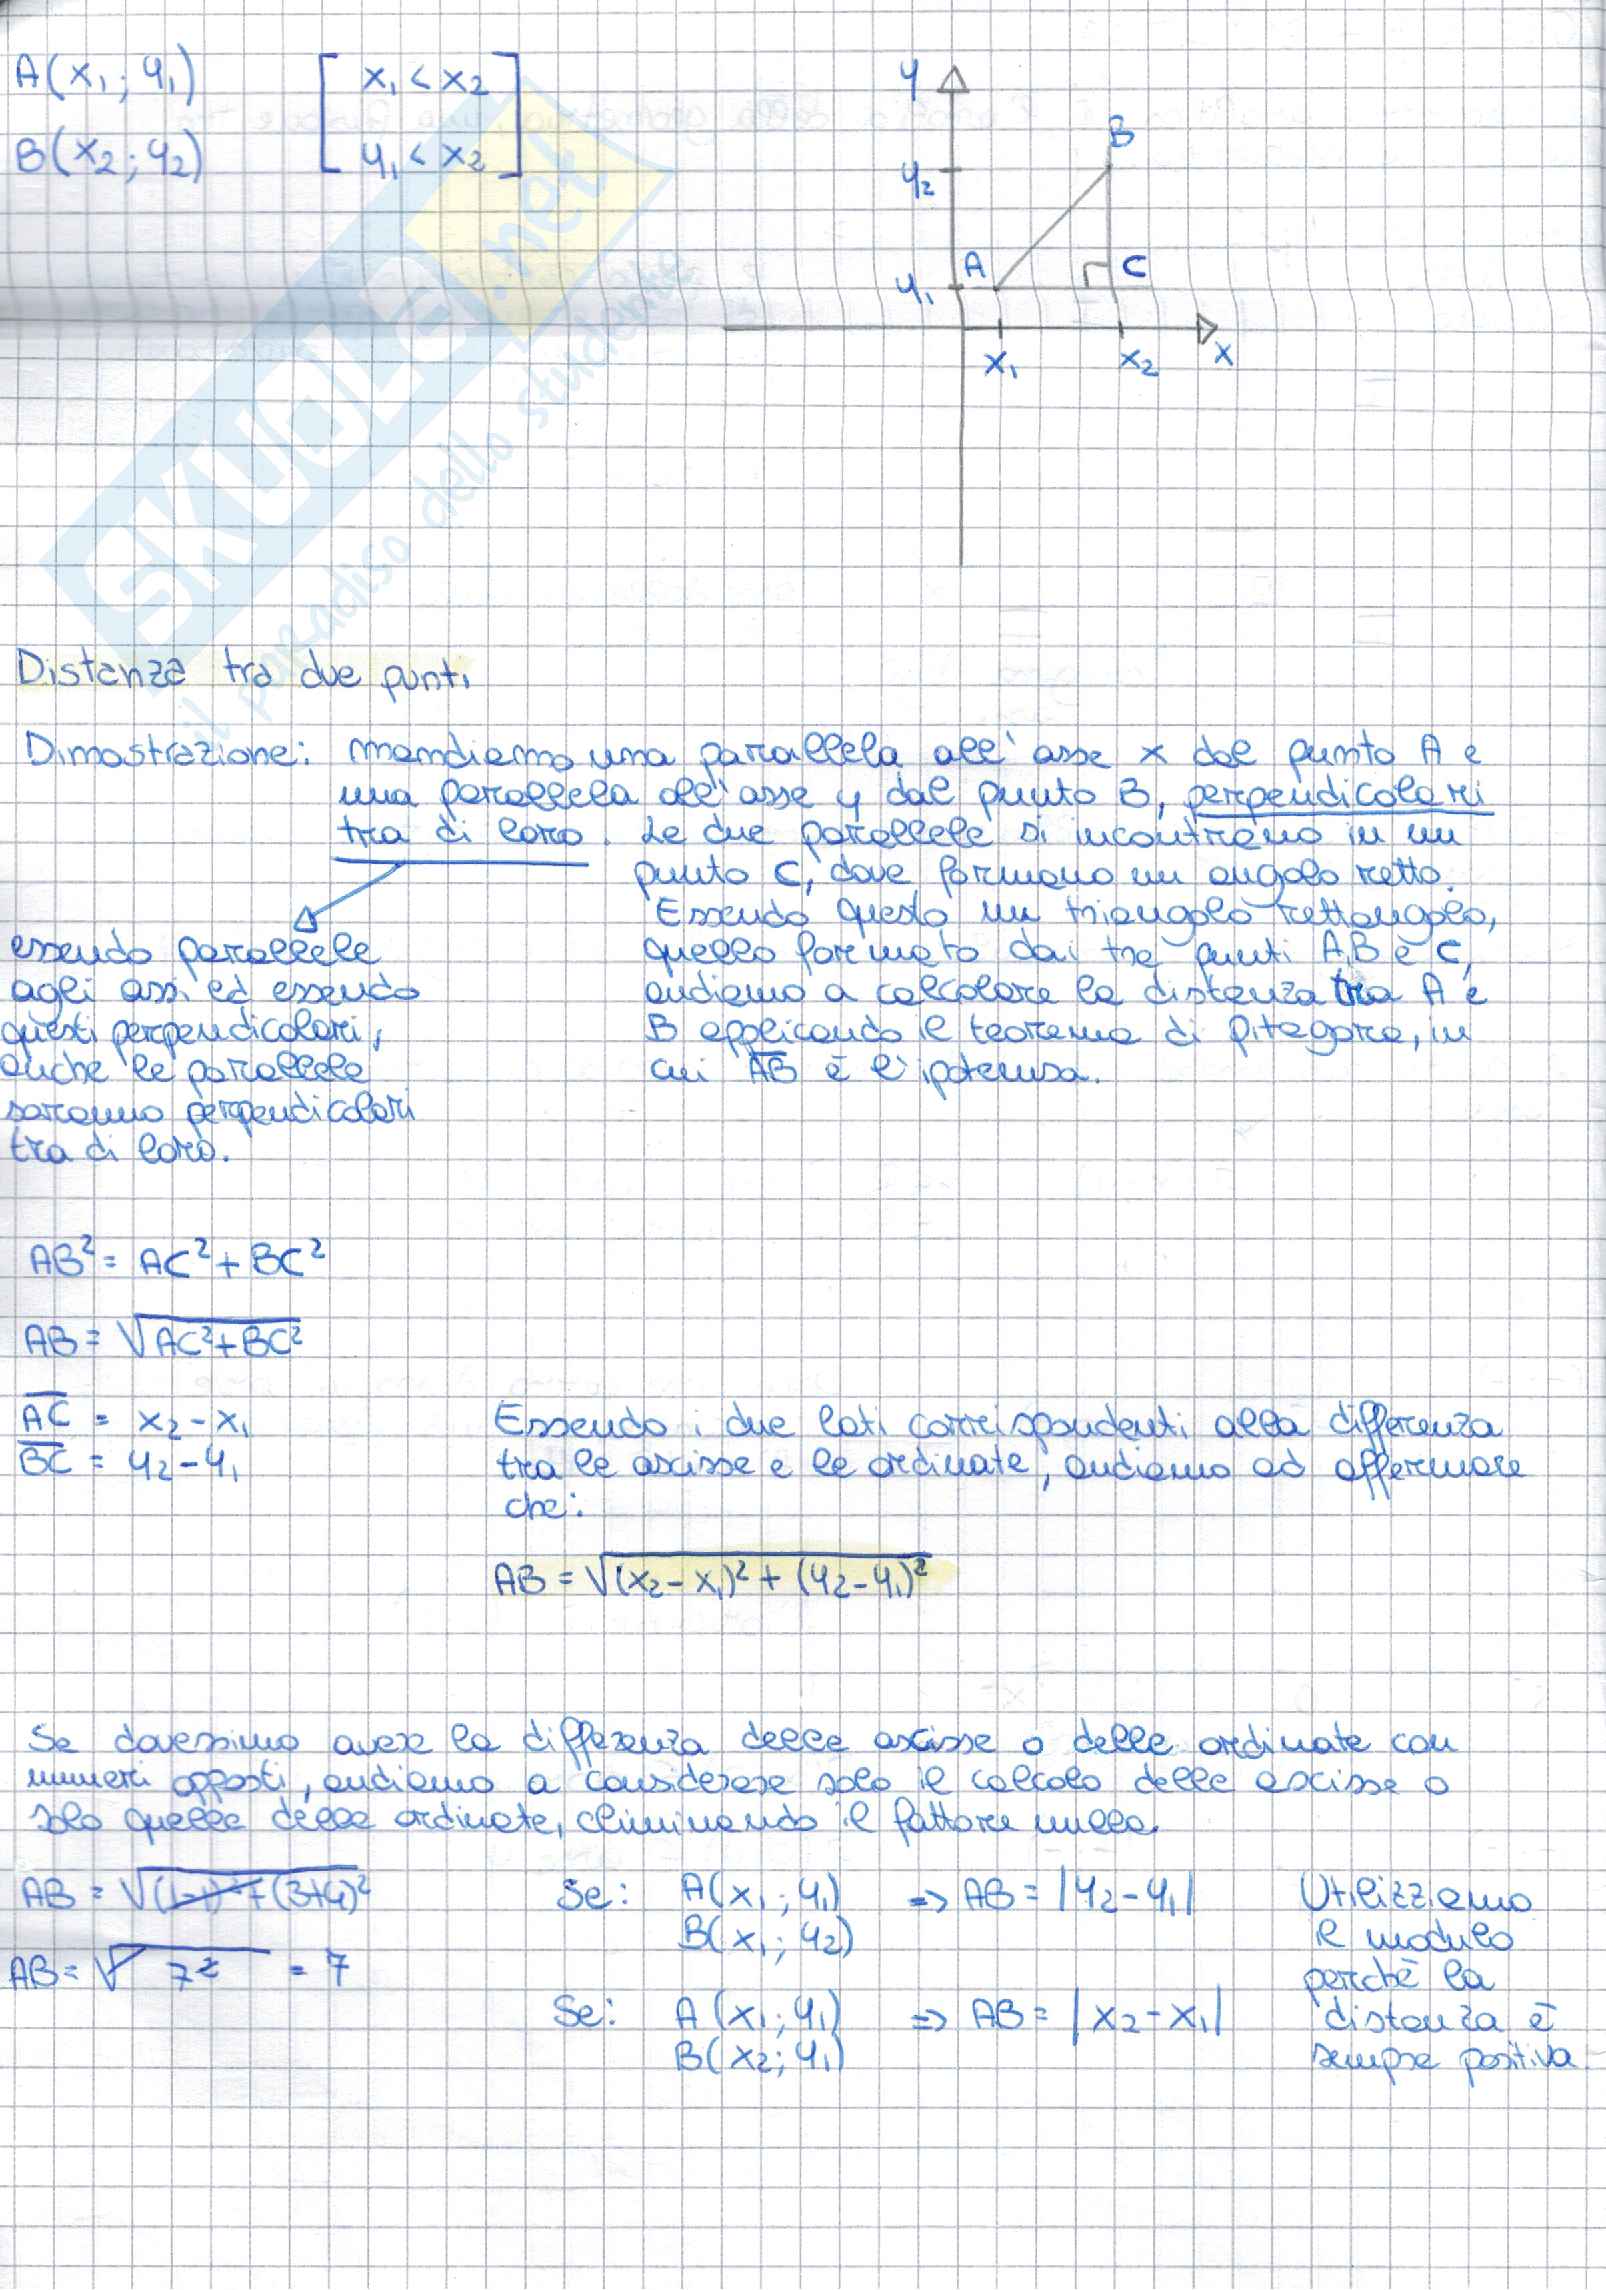 A(x₁; y₁)
B(x₂; y₂)
[x₁ < x₂
y₁ < x₂]
y
B
y₂
A
C
y₁
x₁
x₂
x
SKUOLA.net
il paradiso dello studente
Distanza tra due punti
Dimostrazione: mandiamo una parallela all'asse x dal punto A e
una parallela all'asse y dal punto B, perpendicolari
tra di loro. Le due parallele si incontrano in un
punto C, dove formano un angolo retto.
Essendo questo un triangolo rettangolo,
quello formato dai tre punti A, B e C,
andiamo a calcolare la distanza tra A e
B applicando il teorema di Pitagora, in
cui AB è l'ipotenusa.
essendo parallele
agli assi ed essendo
questi perpendicolari,
anche le parallele
saranno perpendicolari
tra di loro.
AB² = AC² + BC²
AB = √(AC² + BC²)
AC = x₂ - x₁
BC = y₂ - y₁
Essendo i due lati corrispondenti alla differenza
tra le ascisse e le ordinate, andiamo ad affermare
che:
AB = √((x₂ - x₁)² + (y₂ - y₁)²)
Se dovessimo avere la differenza delle ascisse o delle ordinate con
numeri opposti, andiamo a considerare solo il calcolo delle ascisse o
solo quelle delle ordinate, eliminando il fattore nullo
AB = √((1-1)² + (3+4)²
AB = √7² = 7
Se: A(x₁; y₁) => AB = |y₂ - y₁|
B(x₁; y₂)
Se: A(x₁; y₁) => AB = |x₂ - x₁|
B(x₂; y₁)
Utilizziamo
il modulo
perchè la
distanza è
sempre positiva